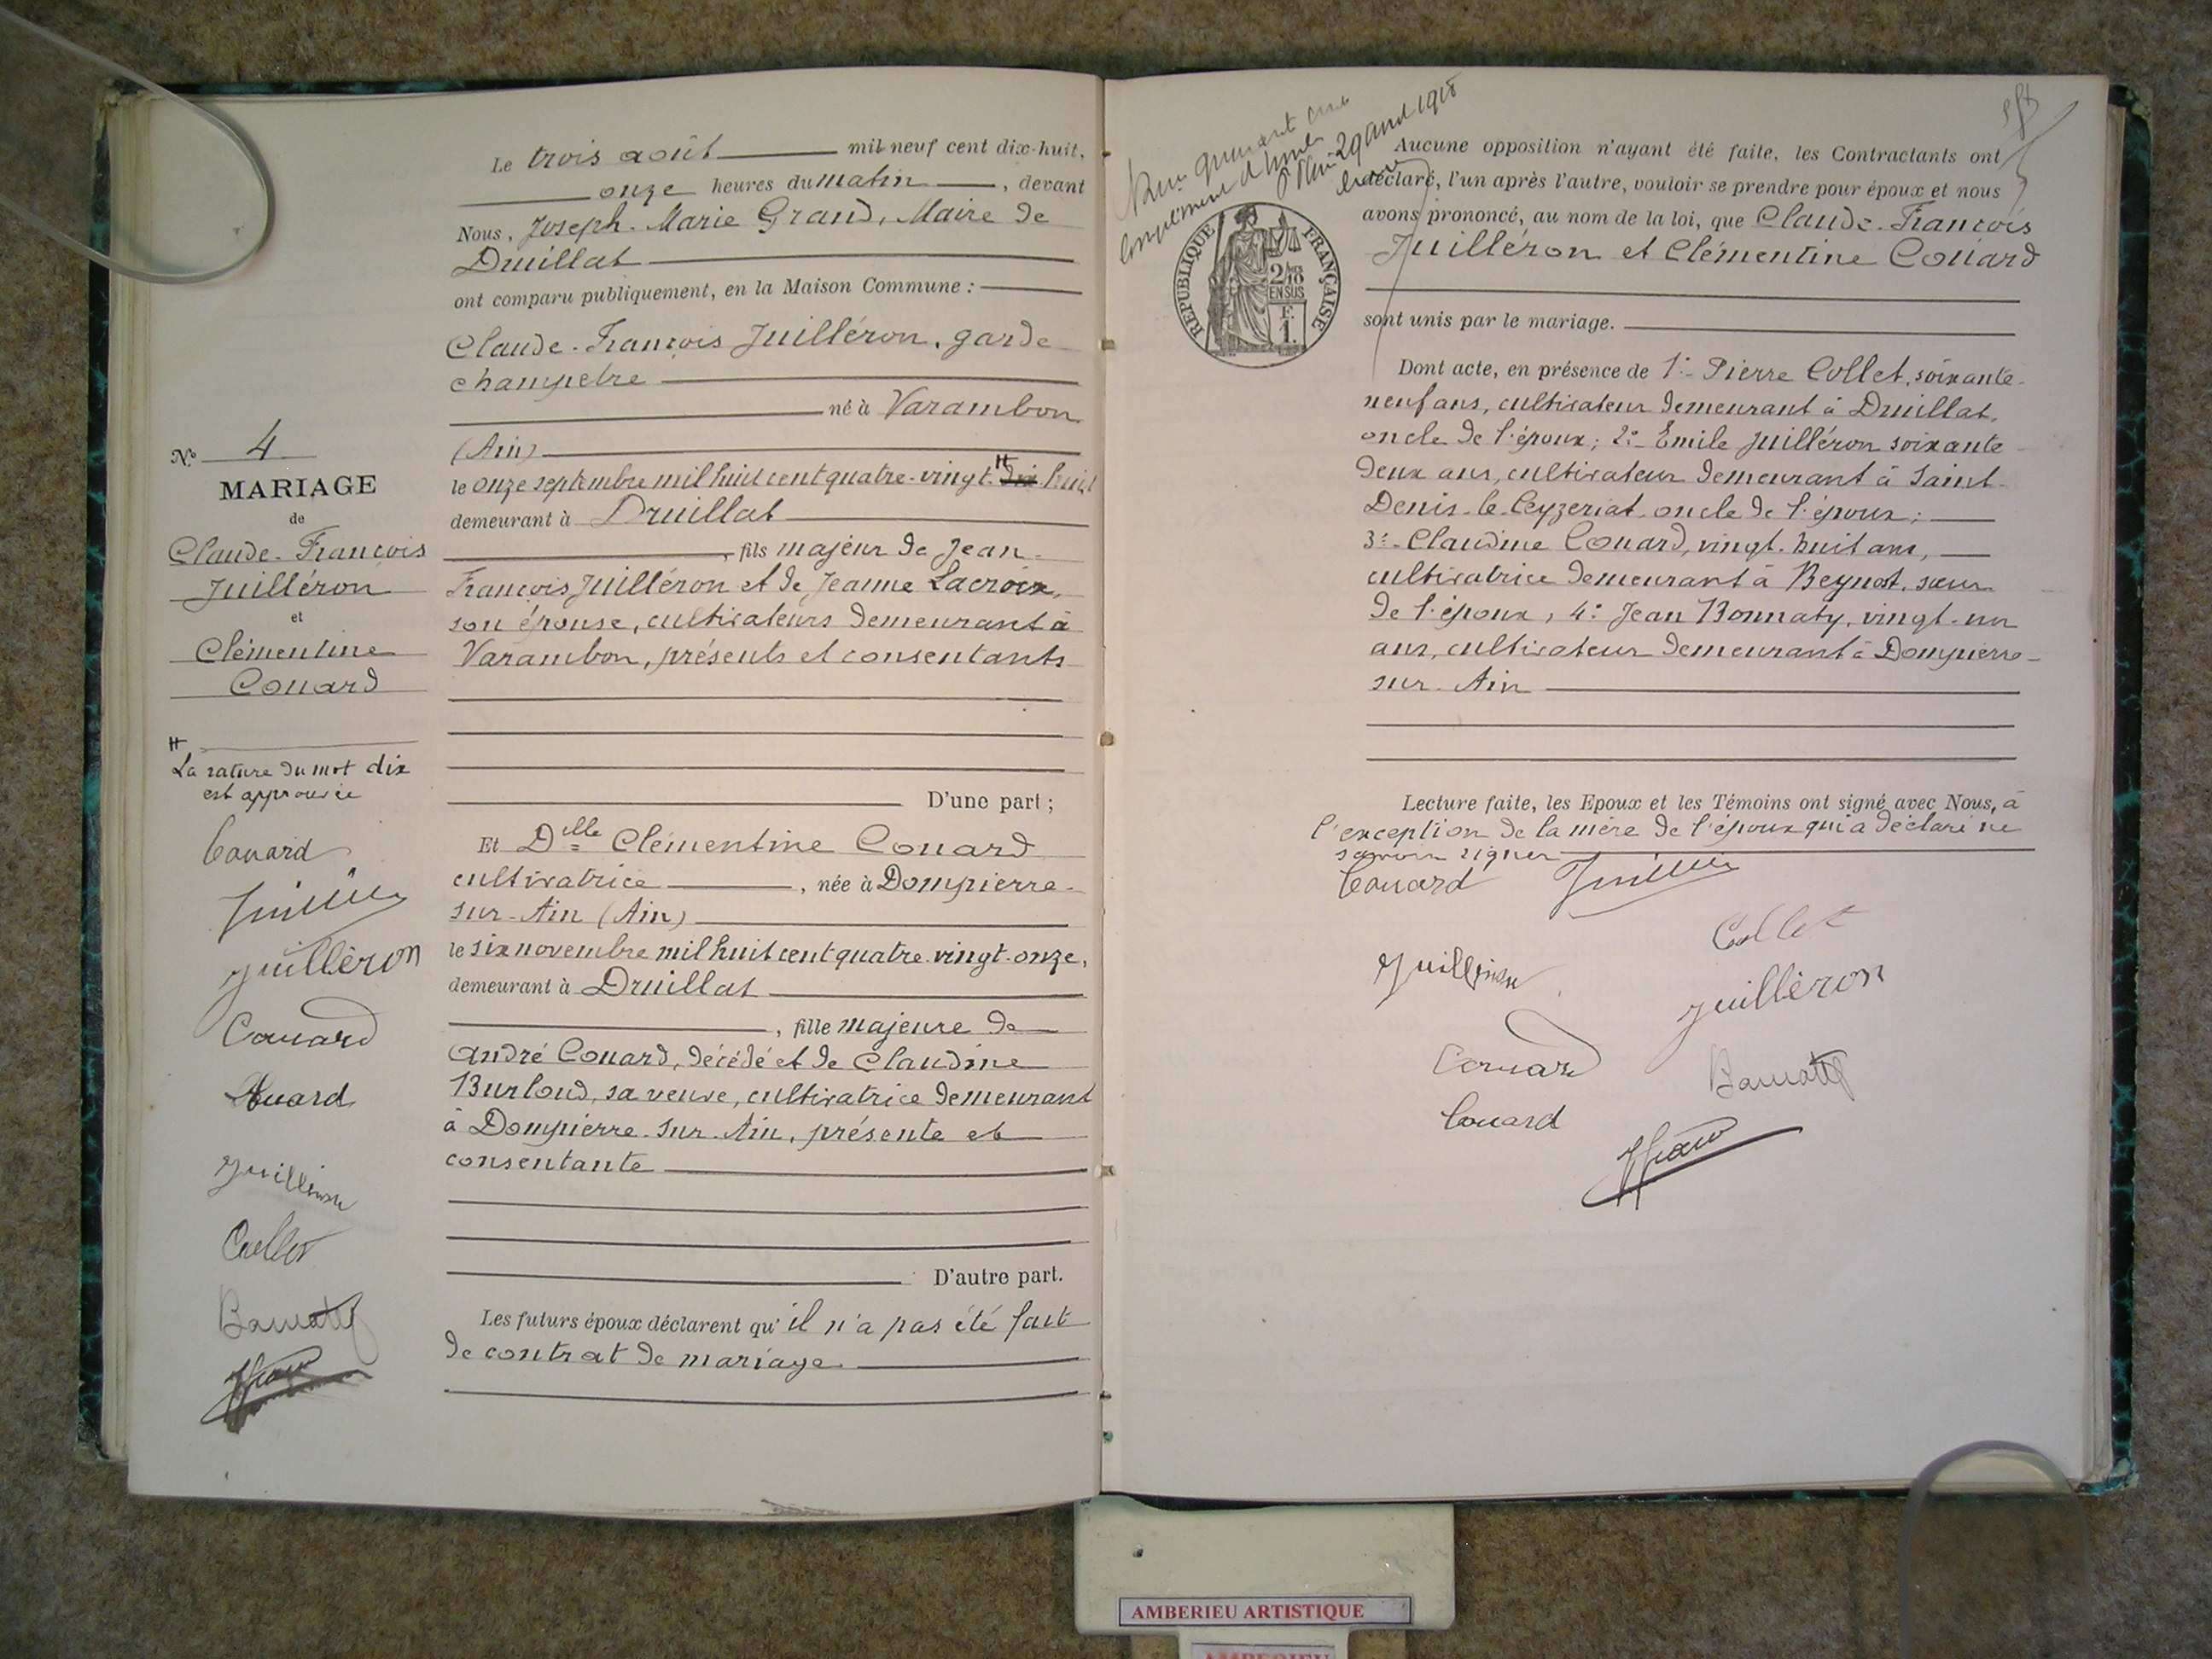 Le trois août mil neuf cent dix-huit,
onze heures du matin, devant
Nous, Joseph-Marie Grand, Maire de
Druillat
ont comparu publiquement, en la Maison Commune :
Claude-François Juilléron, garde
champetre
né à Varambon
(Ain)
le onze septembre mil huit cent quatre-vingt-dix huit
demeurant à Druillat
, fils majeur de Jean-
François Juilléron et de Jeanne Lacroix,
son épouse, cultivateurs demeurant à
Varambon, présents et consentants
D'une part ;
Et Dlle Clémentine Couard
cultivatrice, née à Dompierre-
sur-Ain (Ain)
le six novembre mil huit cent quatre-vingt-onze,
demeurant à Druillat
, fille majeure de
André Couard, décédé et de Claudine
Burloud, sa veuve, cultivatrice demeurant
à Dompierre-sur-Ain, présente et
consentante
D'autre part.
Les futurs époux déclarent qu'il n'a pas été fait
de contrat de mariage.
N° 4
MARIAGE
de
Claude-François
Juilléron
et
Clémentine
Couard
H
La rature du mot dix
est approuvée
Couard
Juilléron
Couard
Couard
Collet
29 août 1918
RÉPUBLIQUE FRANÇAISE
2/10
EN SUS
F.
1.
Aucune opposition n'ayant été faite, les Contractants ont
déclaré, l'un après l'autre, vouloir se prendre pour époux et nous
avons prononcé, au nom de la loi, que Claude-François
Juilléron et Clémentine Couard
sont unis par le mariage.
Dont acte, en présence de 1°- Pierre Collet, soixante-
neuf ans, cultivateur demeurant à Druillat,
oncle de l'époux ; 2°- Emile Juilléron soixante
deux ans, cultivateur demeurant à Saint-
Denis-le-Ceyzeriat, oncle de l'époux ;
3°- Claudine Couard, vingt-huit ans,
cultivatrice demeurant à Beynost, sœur
de l'époux, 4° Jean Bonnaty, vingt-un
ans, cultivateur demeurant à Dompierre-
sur-Ain
Lecture faite, les Epoux et les Témoins ont signé avec Nous, à
l'exception de la mère de l'époux qui a déclaré ne
savoir signer
Couard
Collet
Juilléron
Couard
Couard
AMBERIEU ARTISTIQUE
AMBERIEU